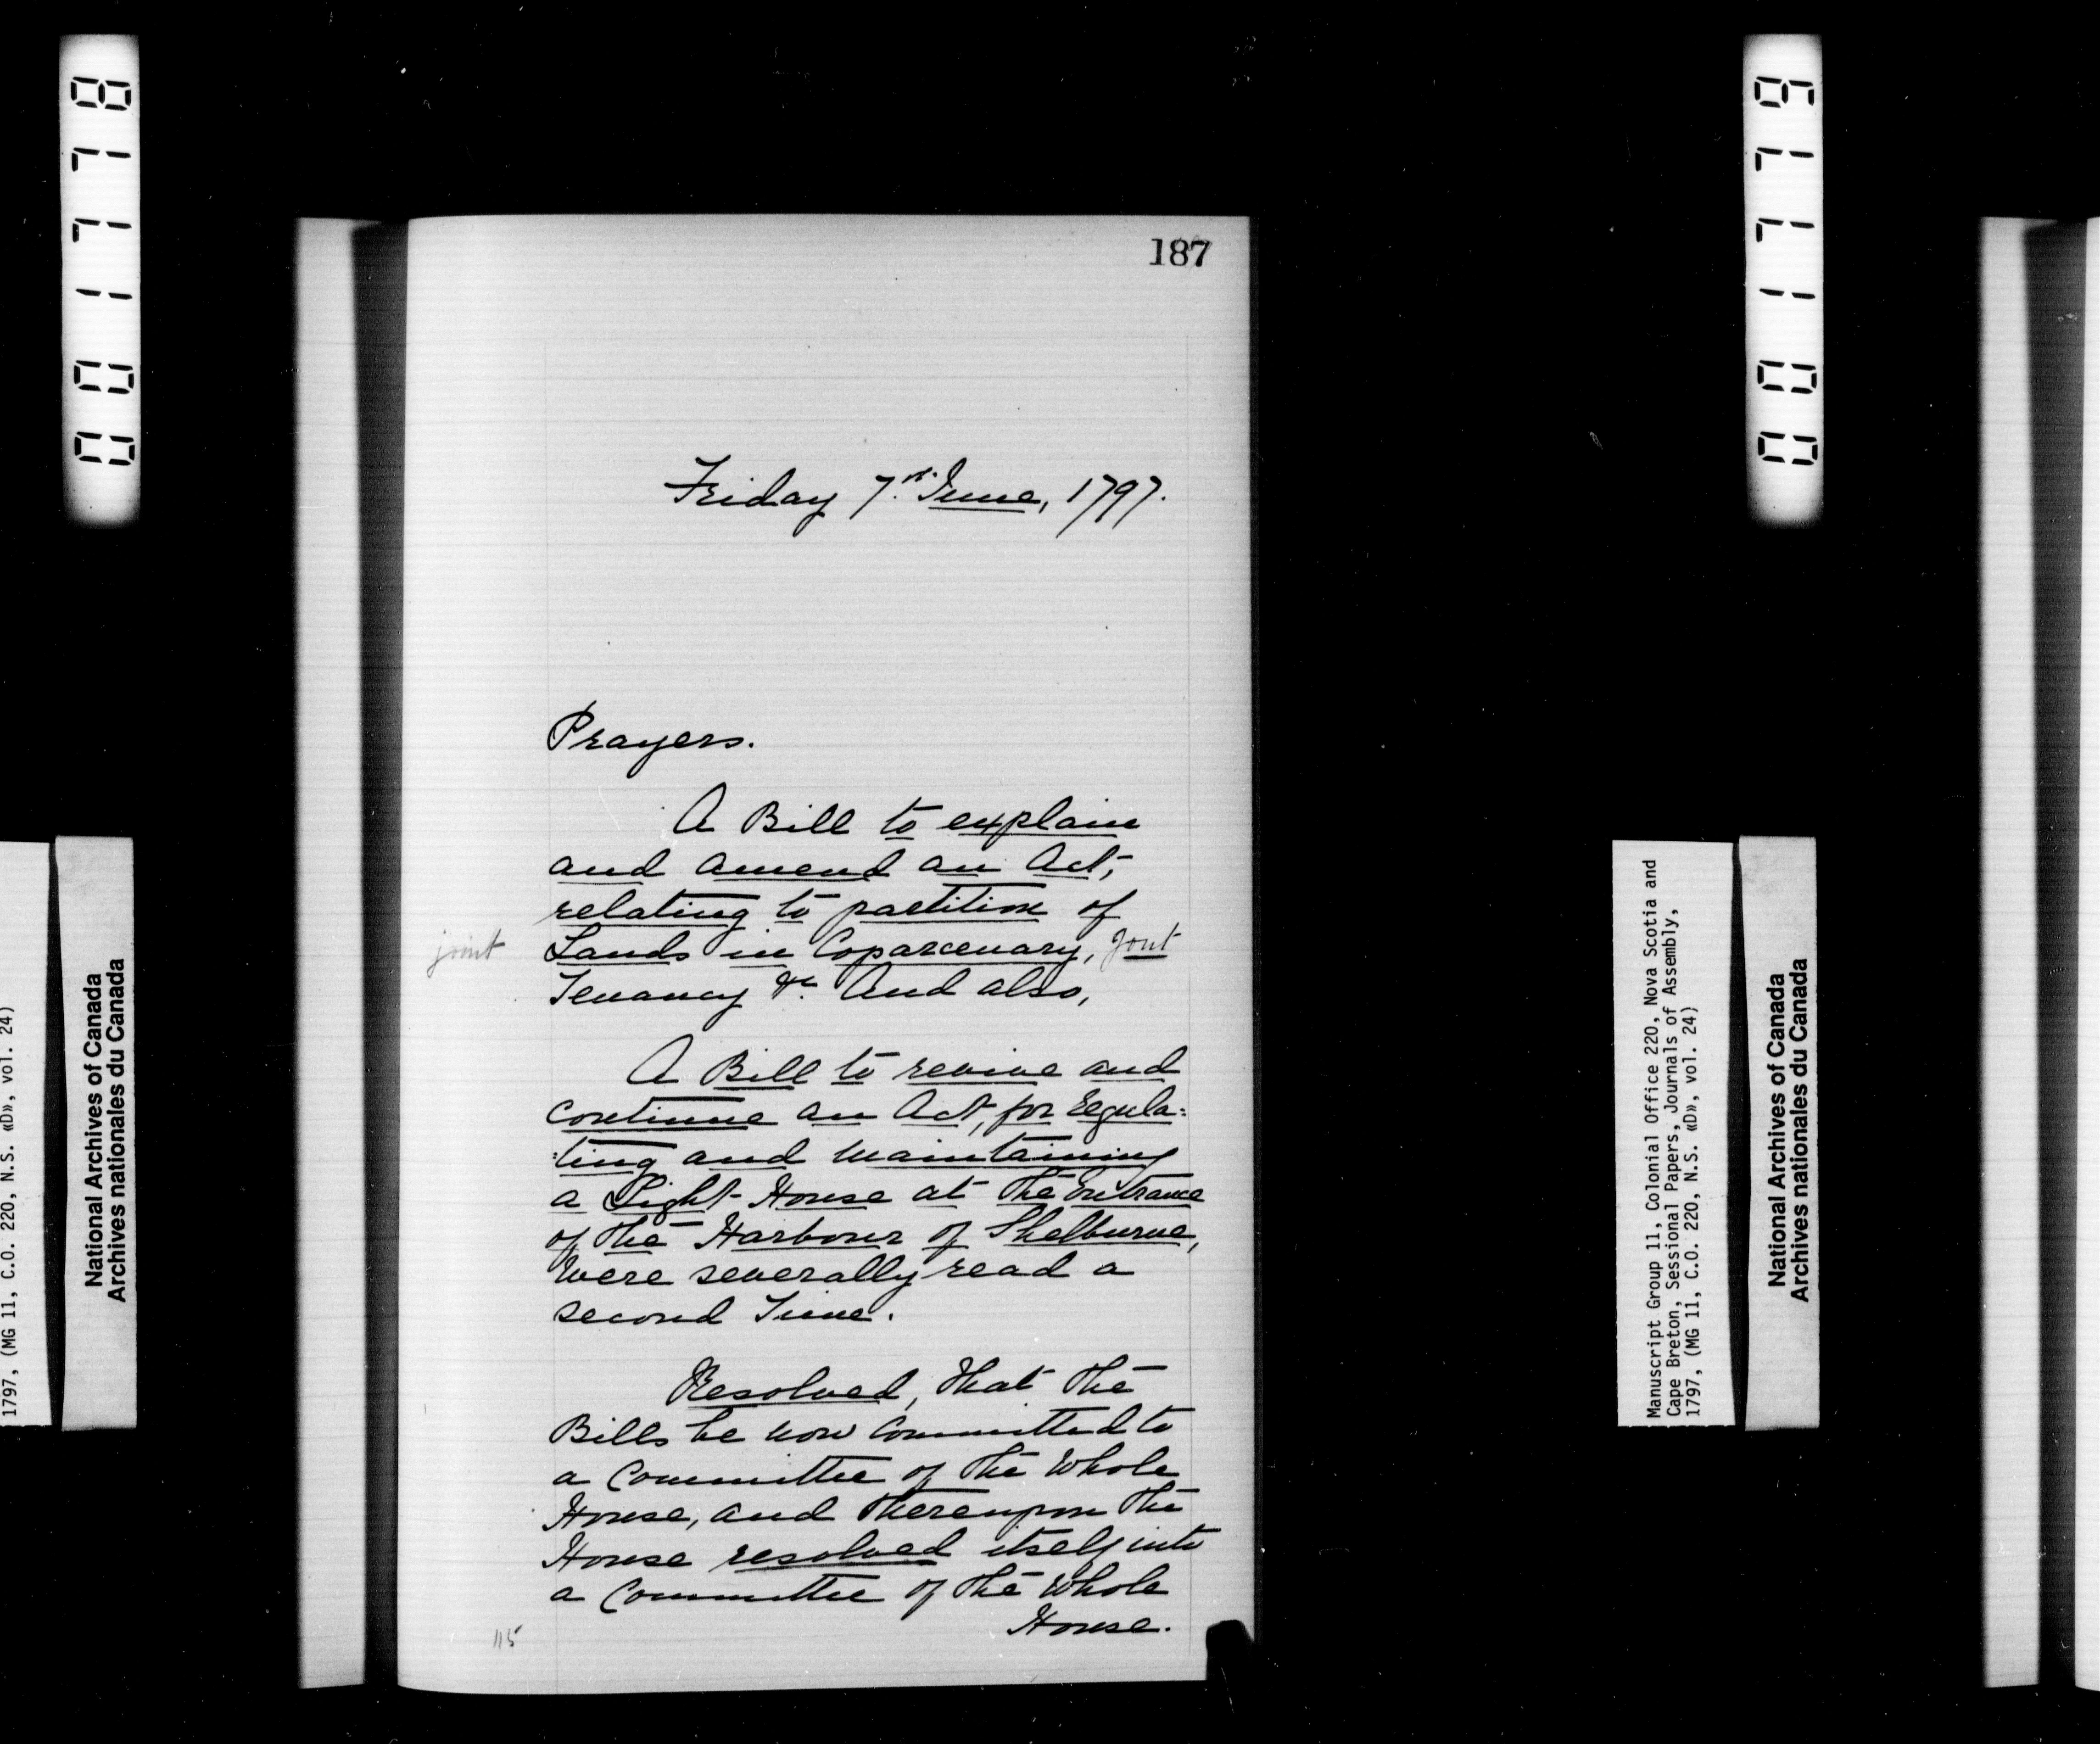 001778
1797, (MG 11, C.O. 220, N.S. «D», vol. 24)
National Archives of Canada
Archives nationales du Canada
187
Friday 7th June, 1797.
Prayers.
A Bill to explain
and amend an Act,
relating to partition of
joint
Lands in Coparcenary, Jont
Tenancy &c. And also,
A Bill to revive and
continue an Act, for regula:
:ting and maintaining
a Light-House at the Entrance
of the Harbour of Shelburne,
were severally read a
second Time.
Resolved, that the
Bills be now committed to
a Committee of the whole
House, and thereupon the
House resolved itself into
a Committee of the whole
House.
115
001779
Manuscript Group 11, Colonial Office 220, Nova Scotia and
Cape Breton, Sessional Papers, Journals of Assembly,
1797, (MG 11, C.O. 220, N.S. «D», vol. 24)
National Archives of Canada
Archives nationales du Canada